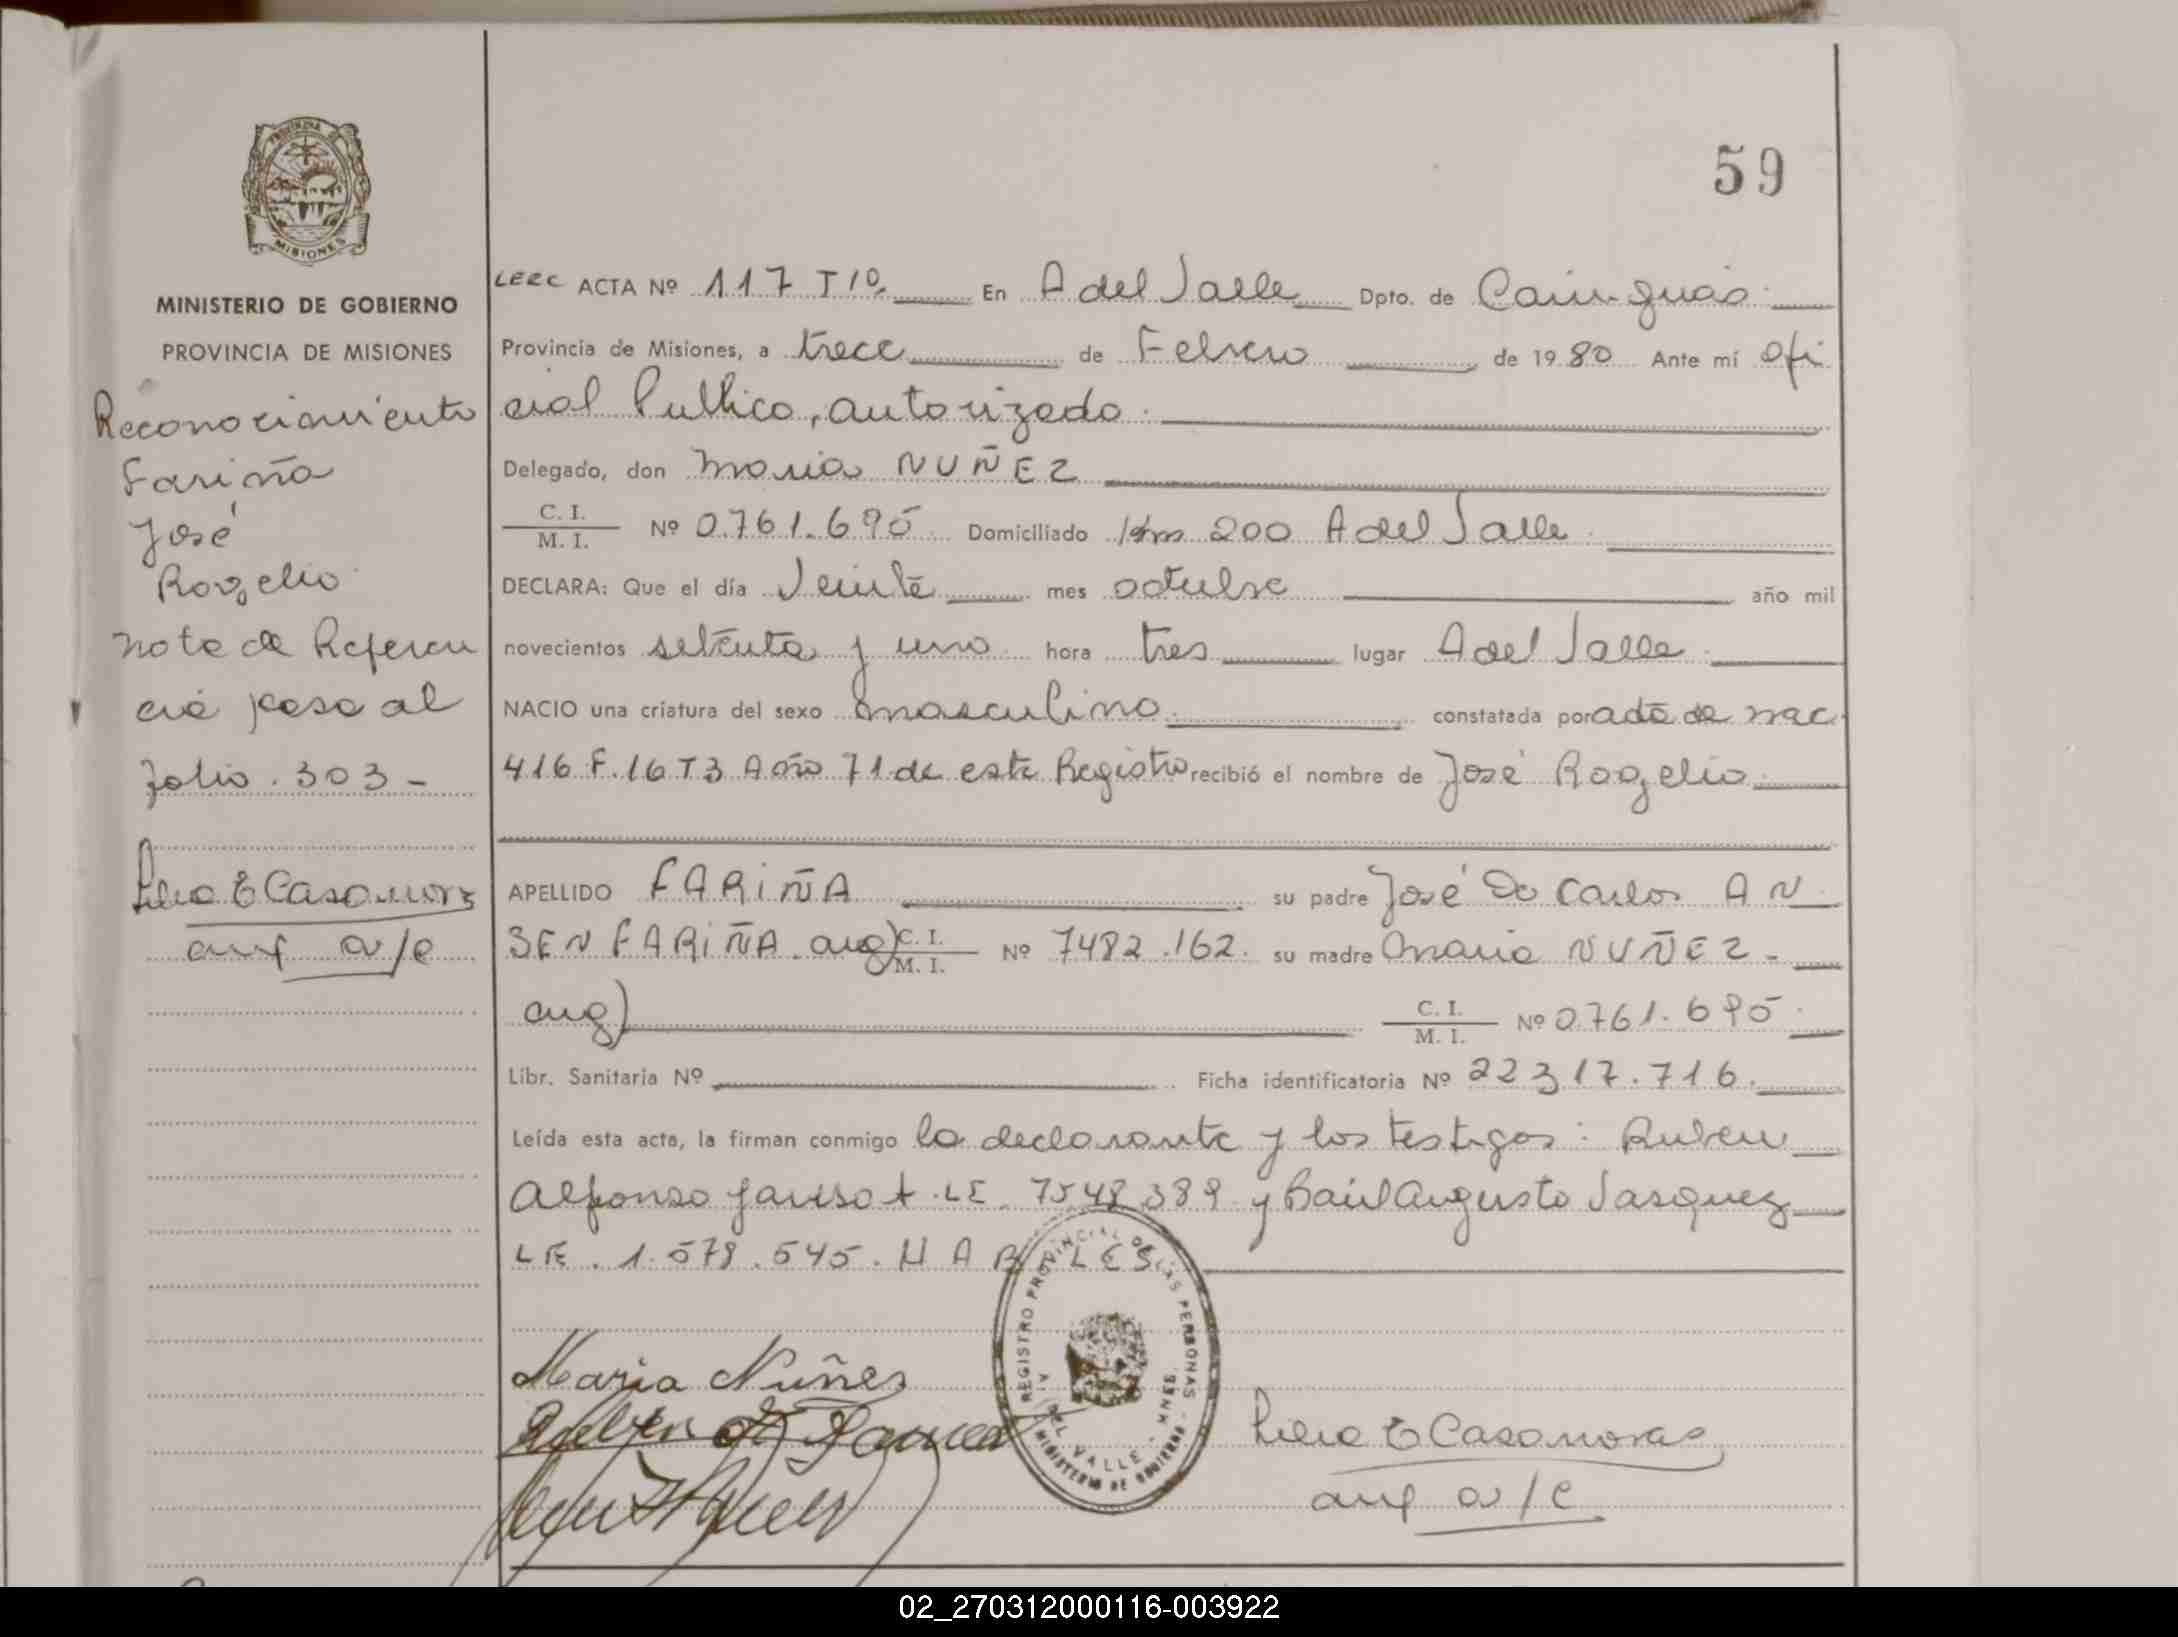 59
PROVINCIA DE
MISIONES
MINISTERIO DE GOBIERNO
PROVINCIA DE MISIONES
Reconocimiento
Fariña
José
Rogelio
nota de Referen
cia pasa al
folio. 303 -
E Casanovas
aux a/c
LEEC ACTA Nº 117 T 1º. En A del Valle Dpto. de Cainguás.
Provincia de Misiones, a trece de Febrero de 1980 Ante mí Ofi
cial Publico, autorizado.
Delegado, don Maria NUÑEZ
C. I. / M. I. Nº 0.761.695 Domiciliado Km 200 A del Valle.
DECLARA: Que el día Veinte mes octubre año mil
novecientos setenta y uno hora tres lugar A del Valle.
NACIO una criatura del sexo masculino. constatada por acta de nac.
416 F.16 T3 Año 71 de este Registro recibió el nombre de José Rogelio.
APELLIDO FARIÑA su padre José Do Carlos AN
SEN FARIÑA. arg) C. I. / M. I. Nº 7482.162. su madre Maria NUÑEZ -
arg) C. I. / M. I. Nº 0.761.695.
Libr. Sanitaria Nº Ficha identificatoria Nº 22317.716.
Leída esta acta, la firman conmigo la declarante y los testigos: Ruben
Alfonso LE. 7548389 y Raúl Augusto Vasquez
LE. 1.579.545. HABILES
Maria Nuñes
REGISTRO PROVINCIAL DE LAS PERSONAS
DEL VALLE - MNES.
MINISTERIO DE GOBIERNO
E Casanovas
aux a/c
02_270312000116-003922